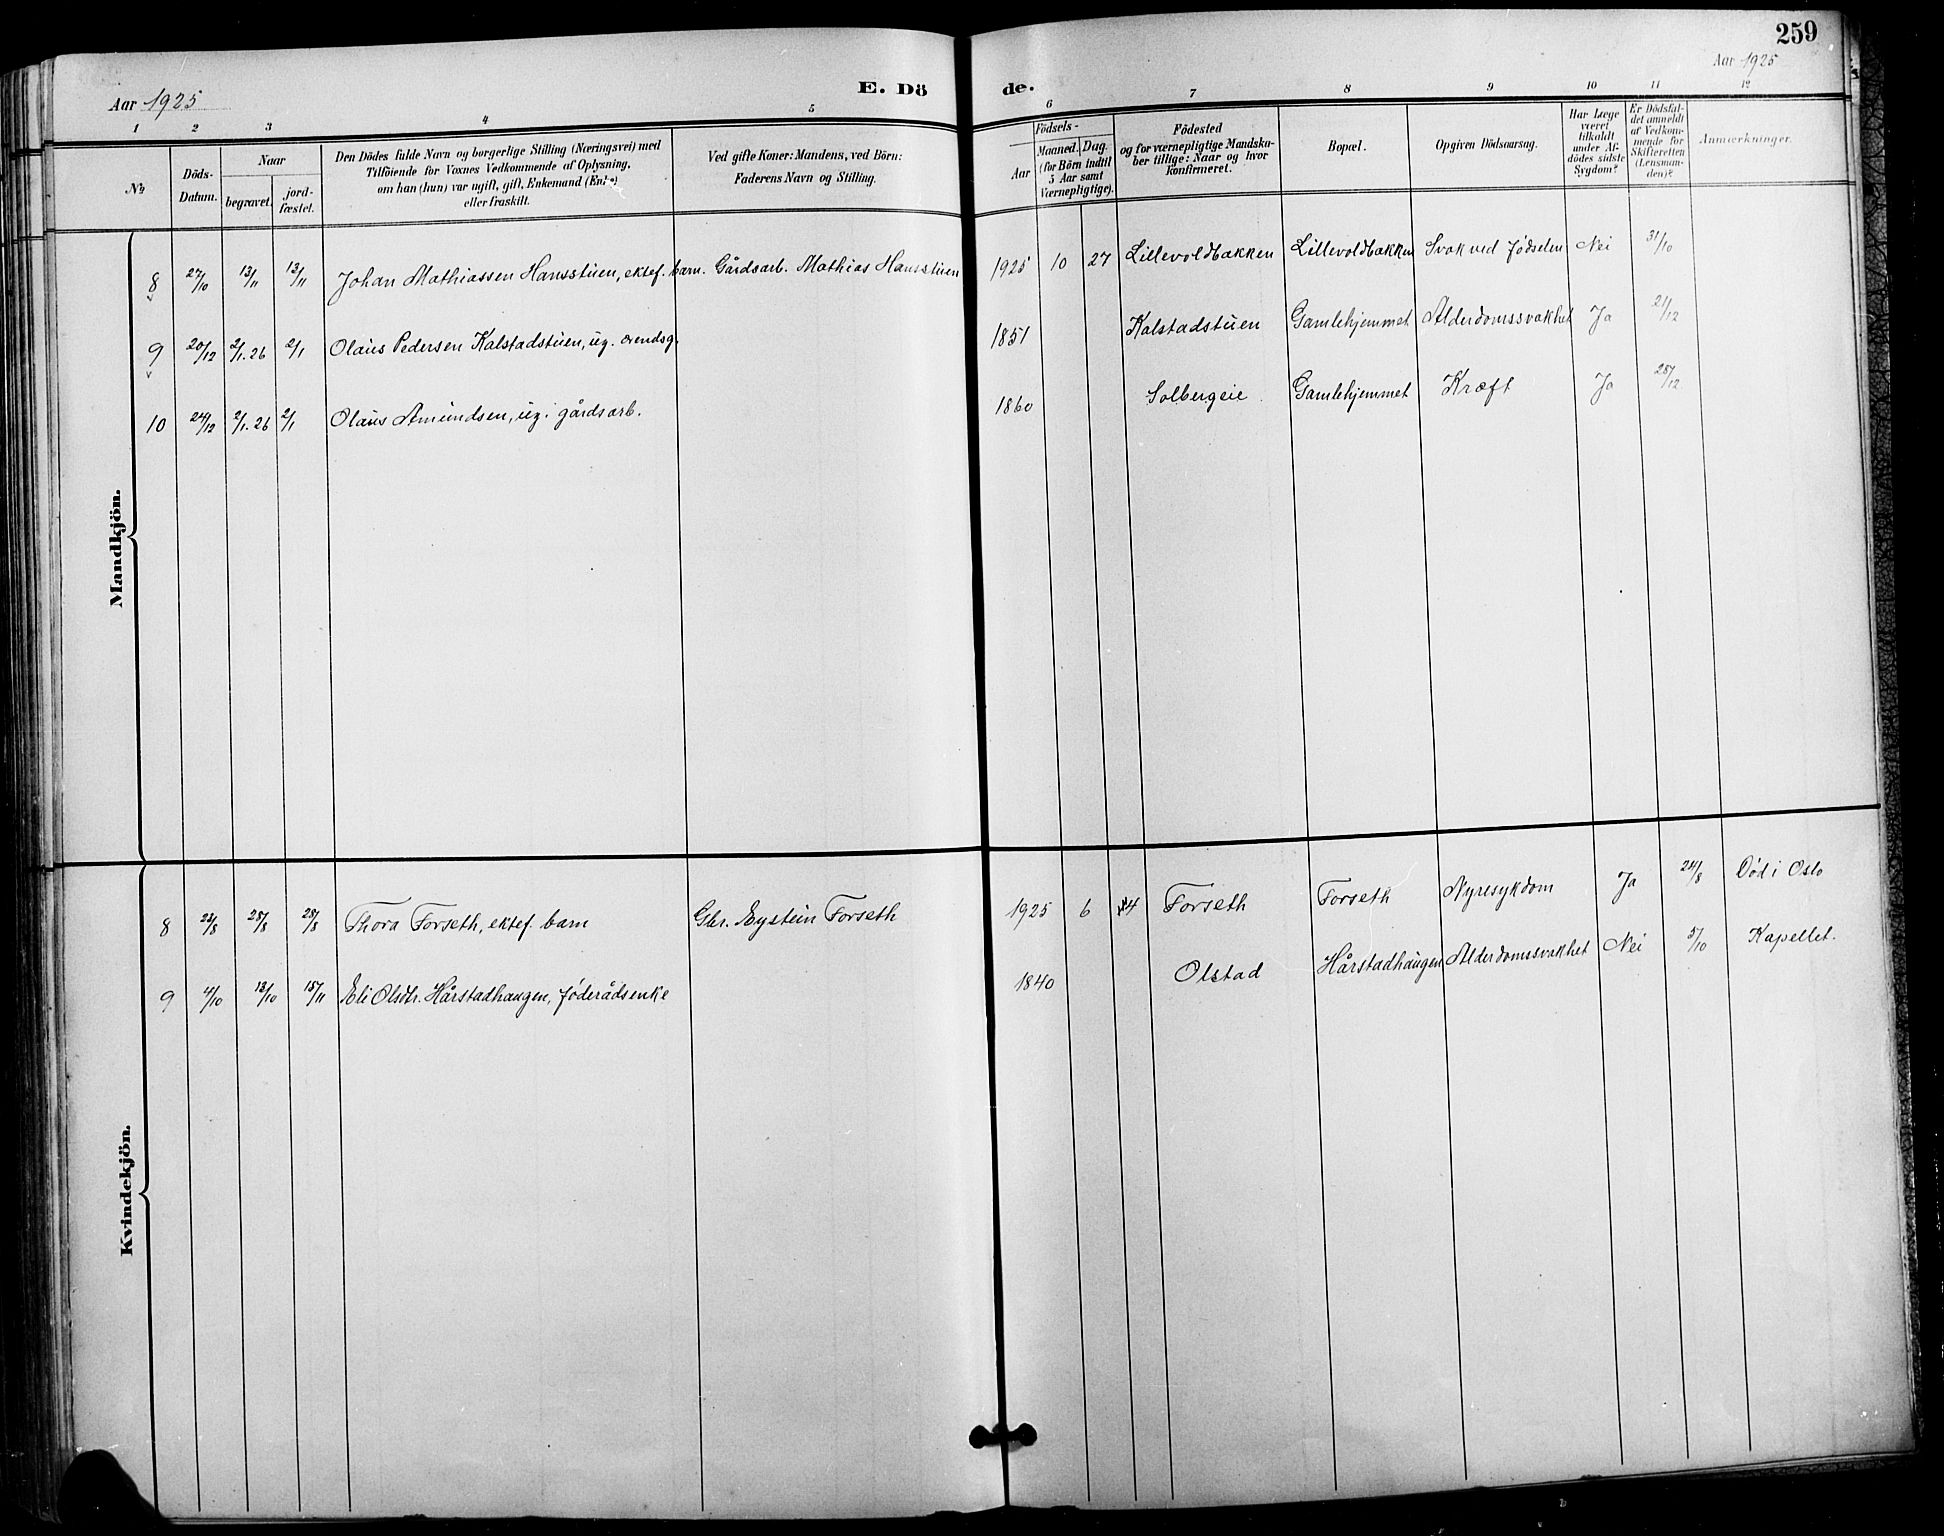 259
Aar 1925
E. Dö de.
Aar 1925
1 2 3 4 5 6 7 8 9 10 11 12
No
Döds-Datum.
Naar
begravet.
jord-fæstet.
Den Dödes fulde Navn og borgerlige Stilling (Næringsvei) med
Tilföiende for Voxnes Vedkommende af Oplysning,
om han (hun) var ugift, gift, Enkemand (Enke)
eller fraskilt.
Ved gifte Koner: Mandens, ved Börn:
Faderens Navn og Stilling.
Födsels-
Aar
Maaned. Dag.
(for Börn indtil
5 Aar samt
Værnepligtige).
Födested
og for værnepligtige Mandska-
ber tillige: Naar og hvor
konfirmeret.
Bopæl.
Opgiven Dödsaarsag.
Har Læge
været
tilkaldt
under Af-
dödes sidste
Sygdom?
Er Dödsfal-
det anmeldt
af Vedkom-
mende for
Skifteretten
(Lensman-
den)?
Anmærkninger.
Mandkjön.
8 27/10 13/11 13/11 Johan Mathiassen Hansstuen, ektef. barn. Gårdsarb. Mathias Hansstuen 1925 10 27 Lillevoldbakken Lillevoldbakken Svak ved fødselen Nei 31/10
9 20/12 2/1.26 2/1 Olaus Pedersen Kalstadstuen, ug. ærendsg. 1851 Kalstadstuen Gamlehjemmet Alderdomssvakhet Ja 21/12
10 24/12 2/1.26 2/1 Olaus Amundsen, ug. gårdsarb. 1860 Solbergeie Gamlehjemmet Kræft Ja 28/12
Kvindekjön.
8 23/8 28/8 28/8 Thora Forseth, ektef. barn Gbr. Eystein Forseth 1925 6 4 Forseth Forseth Nyresykdom Ja 24/8 Død i Oslo
9 4/10 13/10 15/11 Eli Olsdtr. Hårstadhaugen, føderådsenke 1840 Olstad Hårstadhaugen Alderdomssvakhet Nei 5/10 Kapellet.